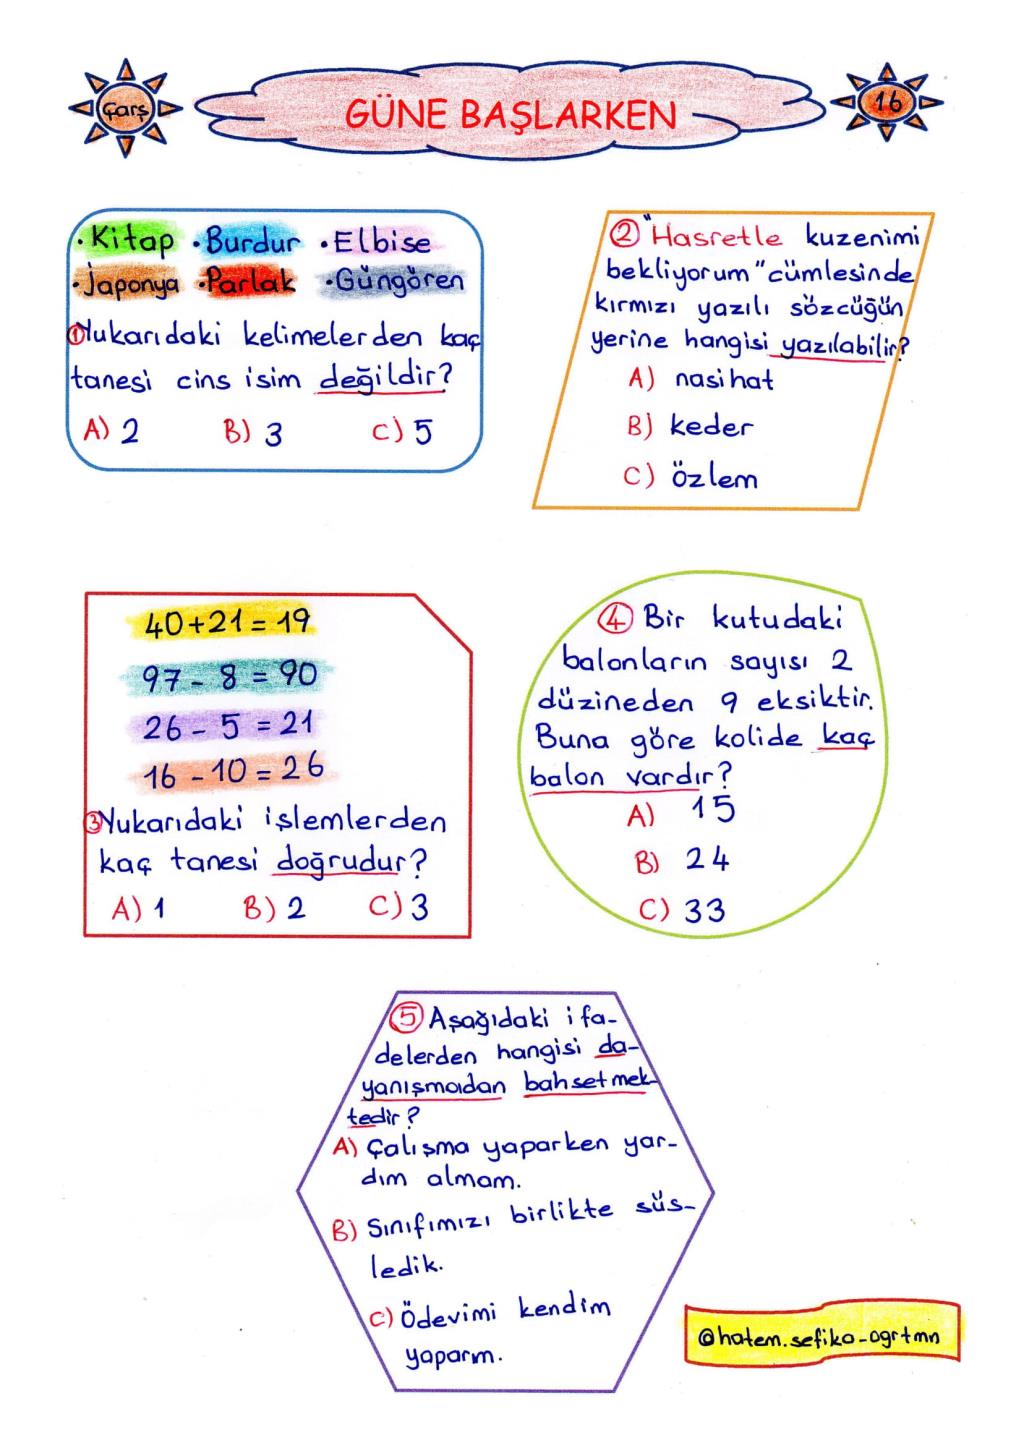 Çarş
GÜNE BAŞLARKEN
16
• Kitap • Burdur • Elbise
• Japonya • Parlak • Güngören
① Yukarıdaki kelimelerden kaç
tanesi cins isim değildir?
A) 2 B) 3 C) 5
② "Hasretle kuzenimi
bekliyorum" cümlesinde
kırmızı yazılı sözcüğün
yerine hangisi yazılabilir?
A) nasihat
B) keder
C) özlem
40+21=19
97-8=90
26-5=21
16-10=26
③ Yukarıdaki işlemlerden
kaç tanesi doğrudur?
A) 1 B) 2 C) 3
④ Bir kutudaki
balonların sayısı 2
düzineden 9 eksiktir.
Buna göre kolide kaç
balon vardır?
A) 15
B) 24
C) 33
⑤ Aşağıdaki ifa-
delerden hangisi da-
yanışmadan bahsetmek-
tedir?
A) Çalışma yaparken yar-
dım almam.
B) Sınıfımızı birlikte süs-
ledik.
C) Ödevimi kendim
yaparım.
@hatem.sefika-ogrtmn